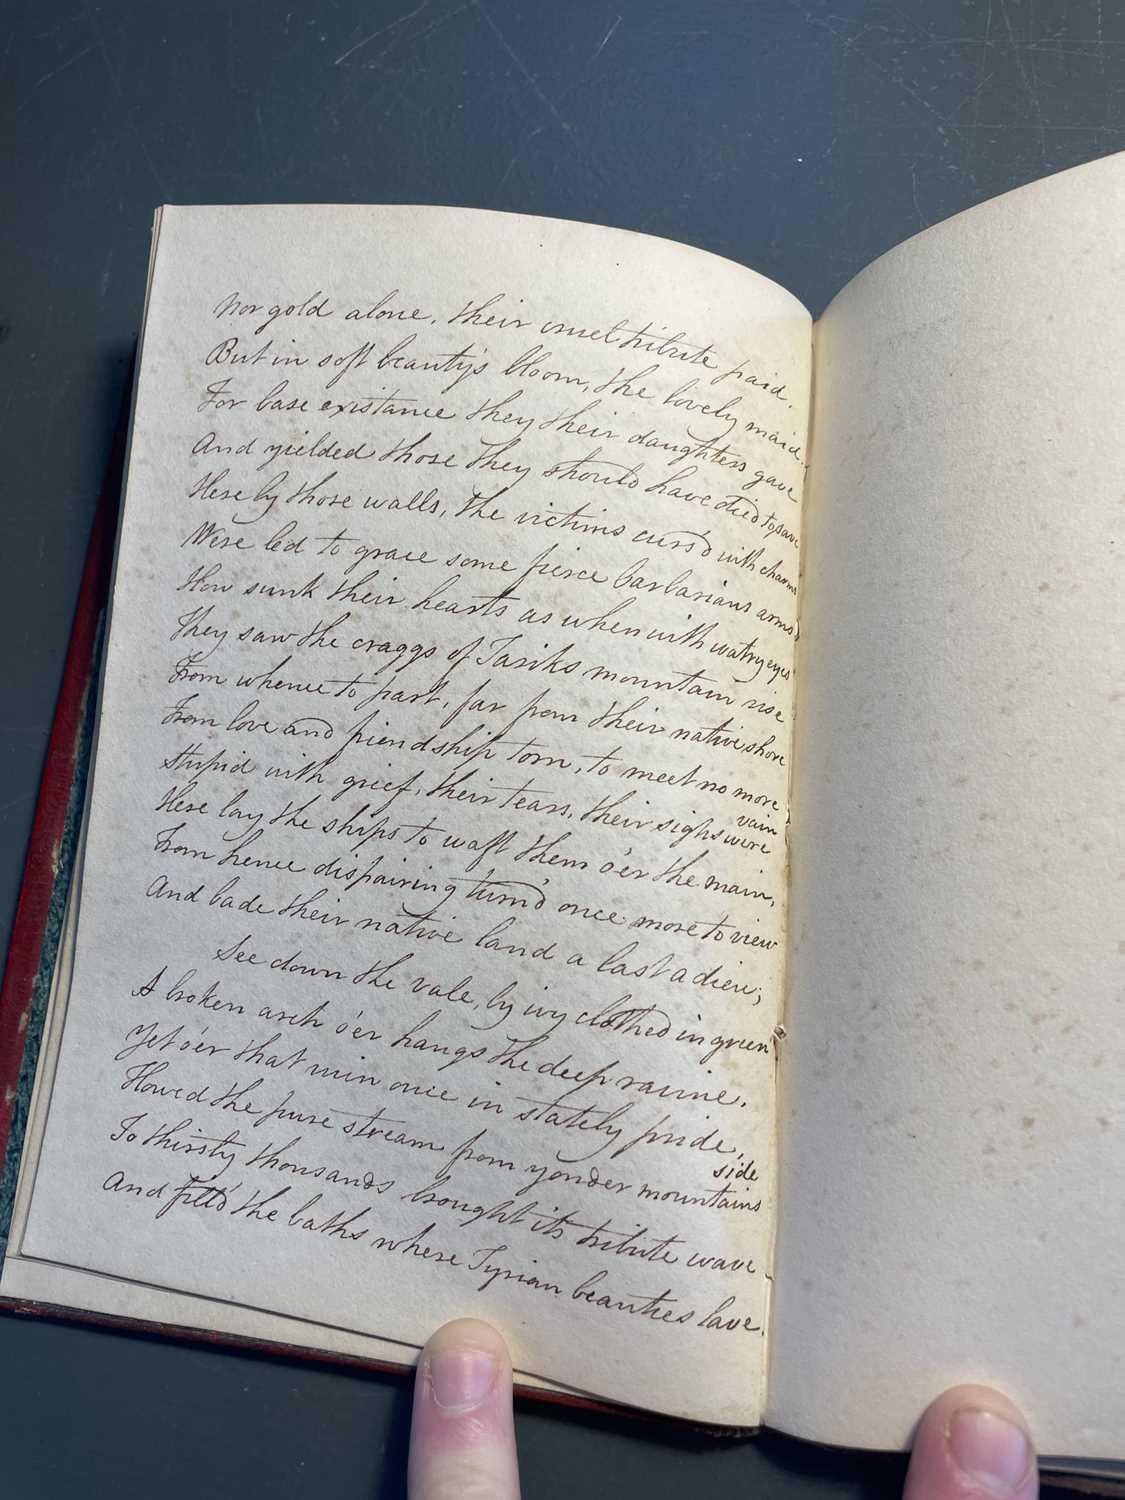 Nor gold alone, their cruel tribute paid.
But in soft beauty's bloom, the lovely maid.
For base existance they their daughters gave
And yielded those they should have died to save
Here by those walls, the victims curs'd with charms
Were led to grace some fierce barbarians arms
How sunk their hearts as when with watry eyes
They saw the craggs of Tariks mountain rise
From whence to part, far from their native shore
From love and friendship torn, to meet no more
Stupid with grief, their tears, their sighs were vain
Here lay the ships to waft them o'er the main,
From hence dispairing turn'd once more to view
And bade their native land a last adieu;
See down the vale, by ivy clothed in green
A broken arch o'er hangs the deep ravine.
Yet o'er that ruin once in stately pride,
Flowed the pure stream from yonder mountains side
To thirsty thousands brought its tribute wave
And fill'd the baths where Tyrian beauties lave.